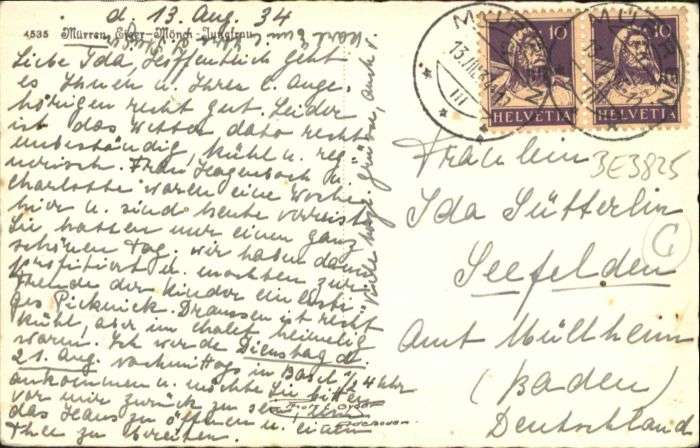 d. 13. Aug. 34
4535 Mürren Eiger-Mönch-Jungfrau
Liebe Ida, hoffentlich geht
es Ihnen u. Ihren l. Ange-
hörigen recht gut. Leider
ist das Wetter dato recht
unbeständig, kühl u. reg-
nerisch. Frau Hagenbach u.
Charlotte waren eine Woche
hier u. sind heute verreist.
Sie hatten nur einen ganz
schönen Tag. Wir haben dann
profitiert u. machten zur
Freude der Kinder ein lusti-
ges Picknick. Draussen ist recht
kühl, aber im Chalet heimelig
warm. Ich werde Dienstag d.
21. Aug. nachmittags in Basel
ankommen u. möchte Sie bitten
vor mir zurück zu sein,
das Haus zu öffnen u. einen
Thee zu bereiten.
Viele herzl. Grüsse, auch v.
MÜRREN
13.VIII.34
MÜRREN
13.VIII.34
10
HELVETIA
10
HELVETIA
Fräulein
3E3825
Ida Sütterlin
C
Seefelden
Amt Müllheim
(Baden)
Deutschland